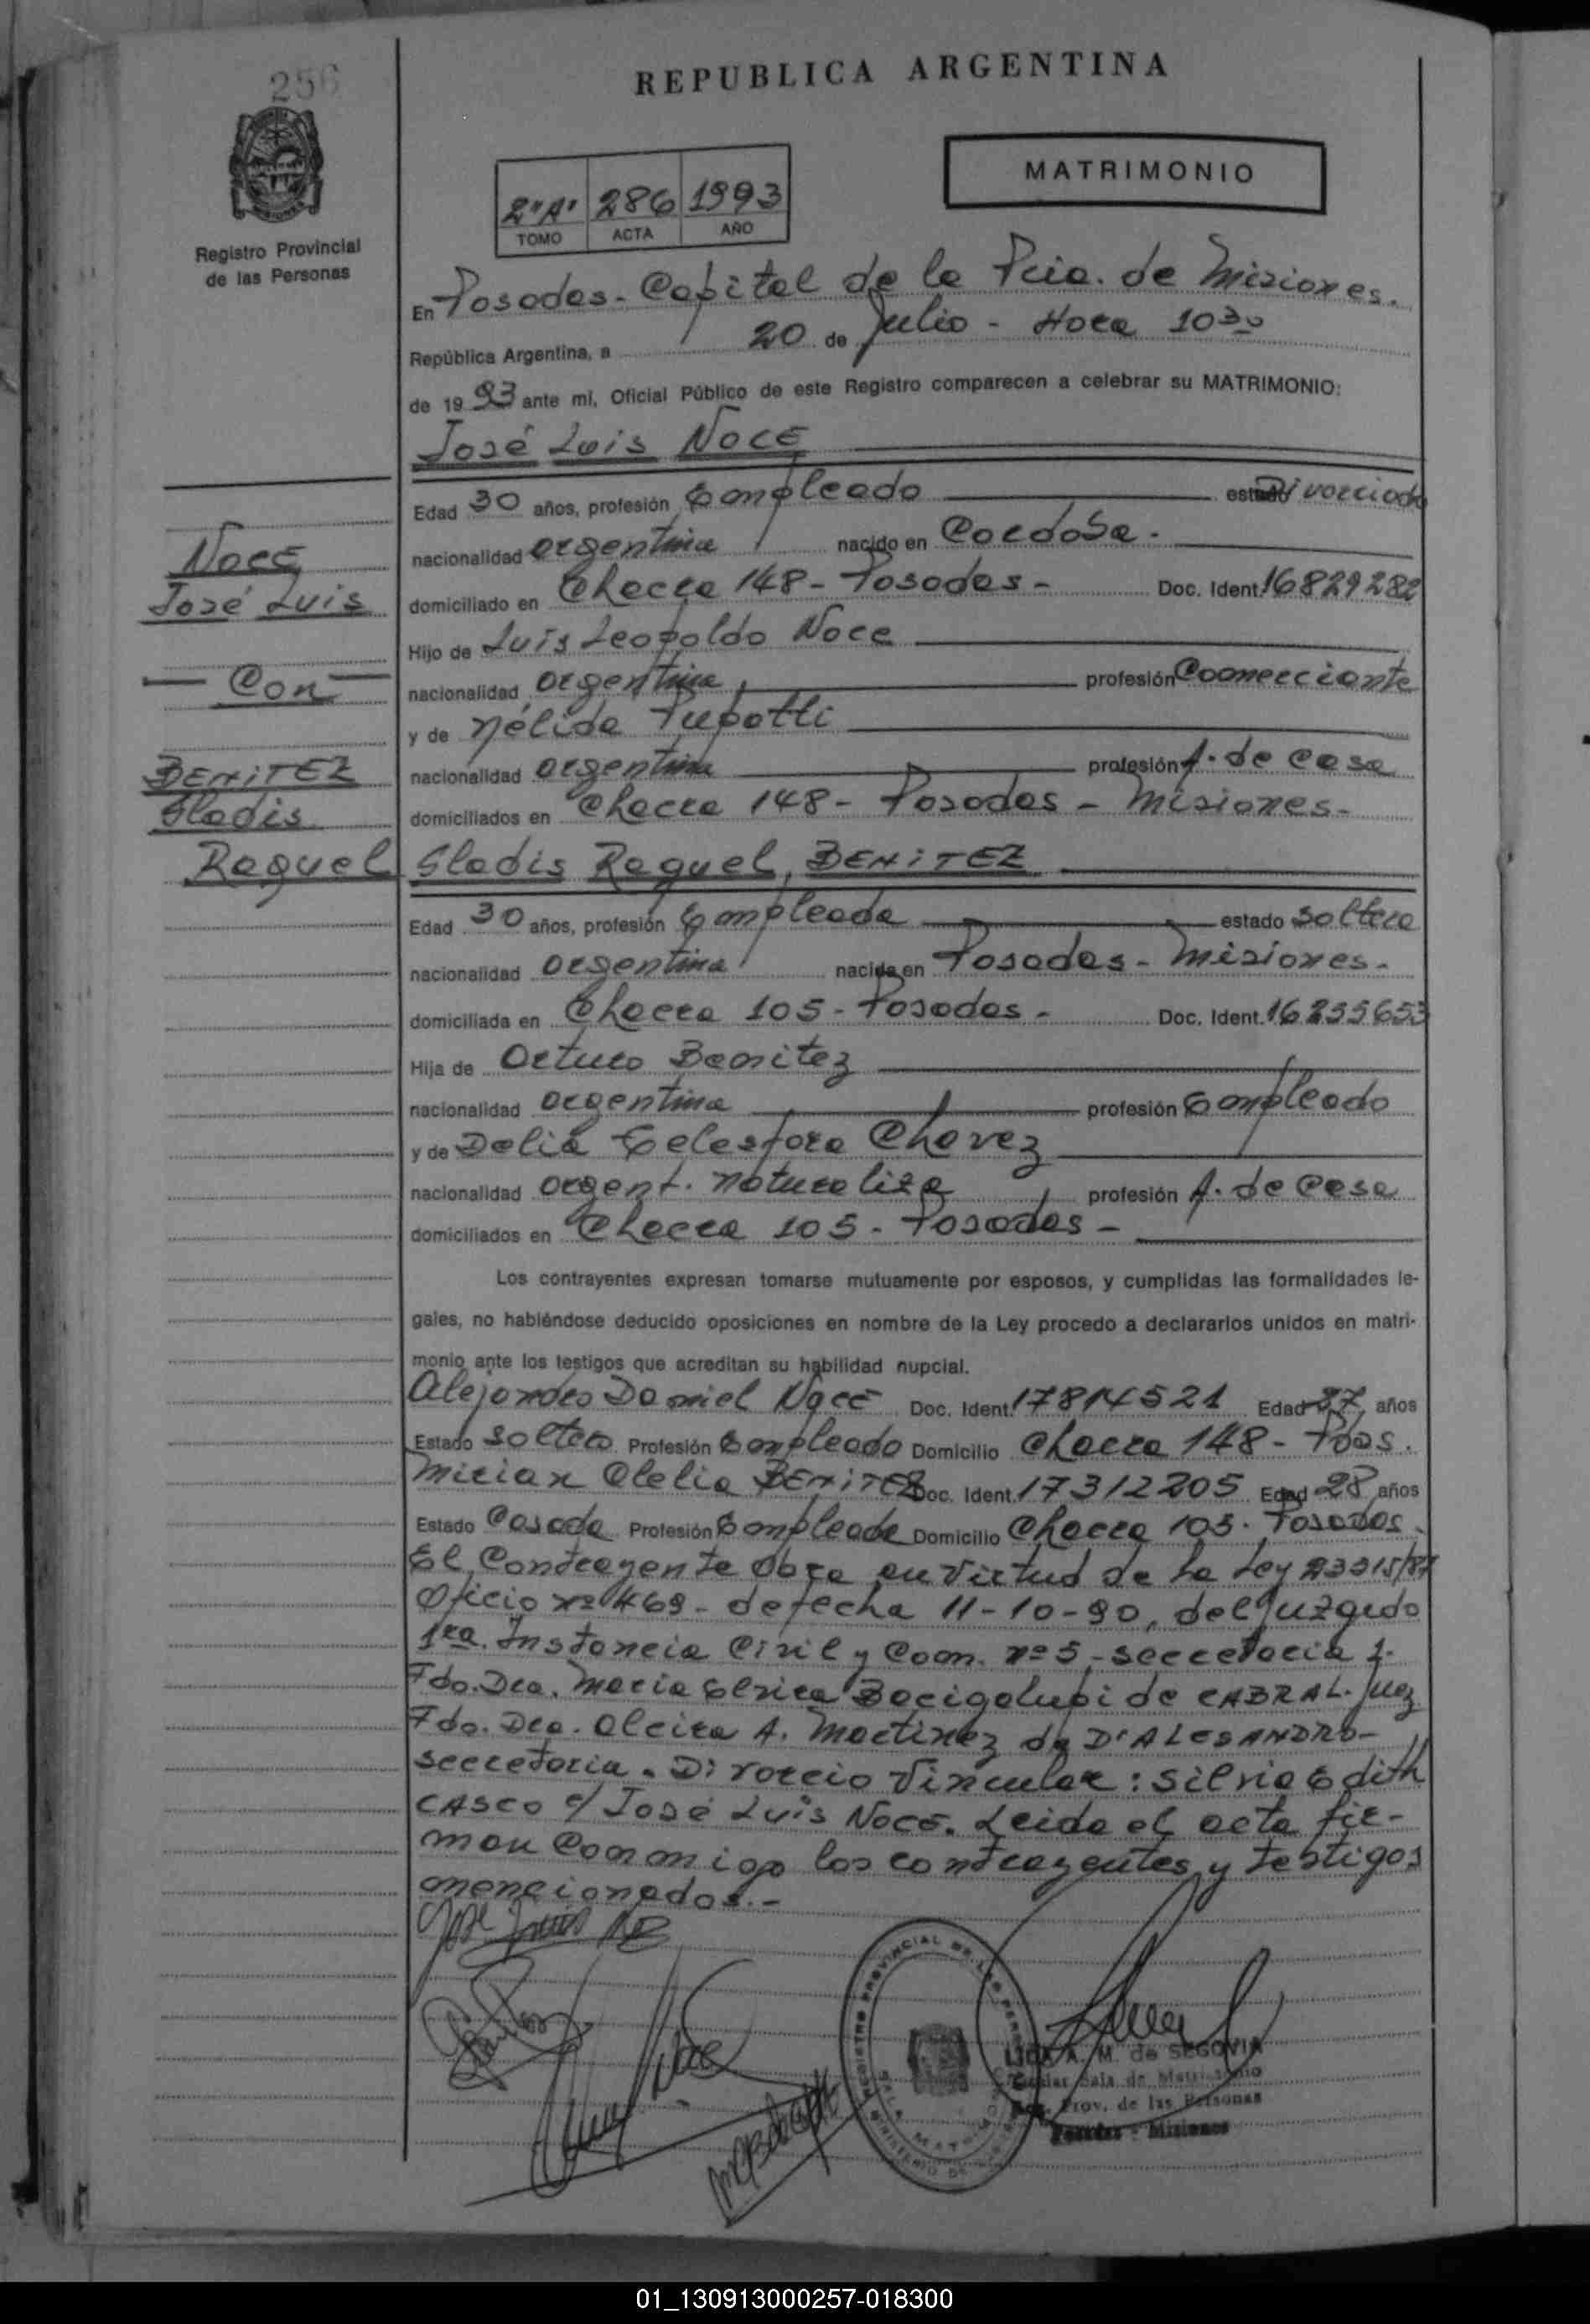 256
REPUBLICA ARGENTINA
MATRIMONIO
2"A" 286 1993
TOMO ACTA AÑO
Registro Provincial
de las Personas
En Posadas - Capital de la Pcia. de Misiones.
República Argentina, a 20 de Julio - Hora 10 30
de 19 93 ante mí, Oficial Público de este Registro comparecen a celebrar su MATRIMONIO:
José Luis NOCE
Edad 30 años, profesión Empleado estado Divorciado
nacionalidad argentina nacido en Cordoba.
domiciliado en Chacra 148 - Posadas - Doc. Ident. 16829282
Hijo de Luis Leopoldo Noce
nacionalidad argentina profesión Comerciante
y de Nélida
nacionalidad argentina profesión A. de casa
domiciliados en Chacra 148 - Posadas - Misiones -
NOCE
José Luis
— Con —
BENITEZ
Gladis
Raquel
Gladis Raquel BENITEZ
Edad 30 años, profesión Empleada estado soltera
nacionalidad argentina nacida en Posadas - Misiones -
domiciliada en Chacra 105 - Posadas - Doc. Ident. 16255653
Hija de Arturo Benitez
nacionalidad argentina profesión Empleado
y de Delia Chavez
nacionalidad argent. naturaliza profesión A. de casa
domiciliados en Chacra 105 - Posadas -
Los contrayentes expresan tomarse mutuamente por esposos, y cumplidas las formalidades le-
gales, no habiéndose deducido oposiciones en nombre de la Ley procedo a declararlos unidos en matri-
monio ante los testigos que acreditan su habilidad nupcial.
Alejandro Daniel NOCE Doc. Ident. 17814521 Edad 27 años
Estado soltero Profesión Empleado Domicilio Chacra 148 - Pdas.
Mirian Clelia BENITEZ Doc. Ident. 17312205 Edad 28 años
Estado Casada Profesión Empleada Domicilio Chacra 105 - Posadas
El Contrayente Obra en virtud de la Ley 23515/87
Oficio nº 469 - de fecha 11-10-90, del Juzgado
1ra. Instancia Civil y Com. nº 5, - secretaria 1.
Fdo. Dra. Maria Elvira Bacigalupi de CABRAL. Juez
Fdo. Dra. Alcira A. Martinez de D'ALESANDRO -
secretaria. Divorcio Vincular: Silvia Edith
CASCO c/ José Luis NOCE. Leida el acta fir-
man conmigo los contrayentes y testigos
mencionados. -
José Luis
REGISTRO PROVINCIAL DE LAS PERSONAS
LIDIA A. M. de SEGOVIA
Titular Sala de Matrimonio
Reg. Prov. de las Personas
Posadas - Misiones
01_130913000257-018300